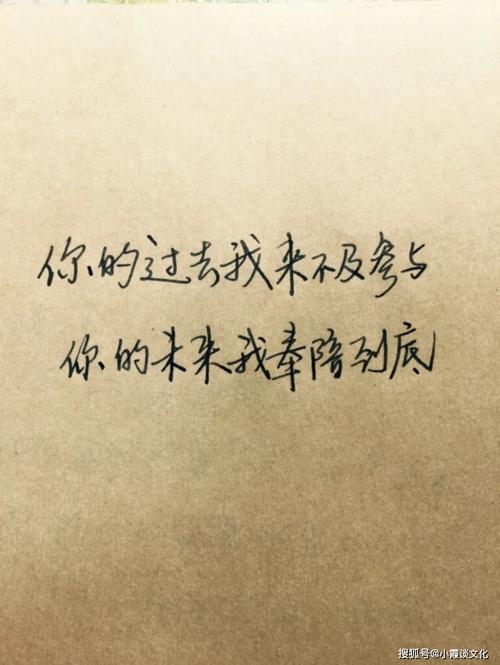 你的过去我来不及参与
你的未来我奉陪到底
搜狐号@小霞谈文化